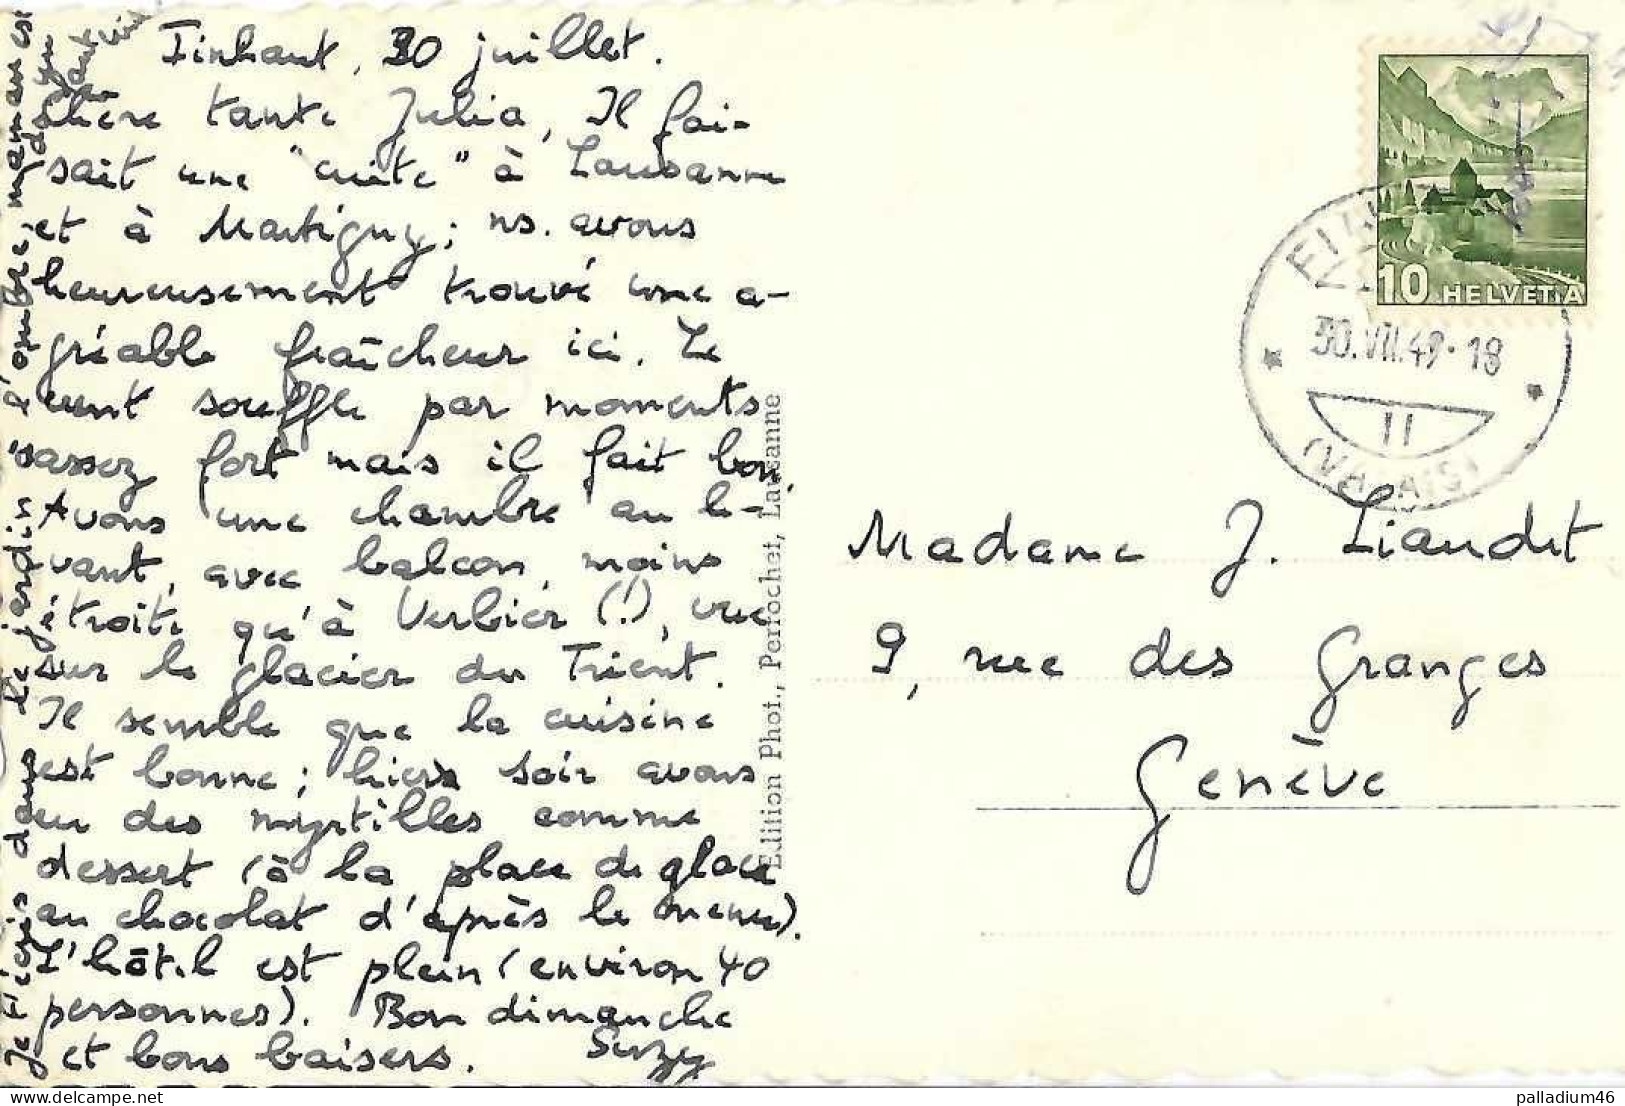 Finhaut, 30 juillet.
Chère tante Julia, Il fai-
sait une "cuite" à Lausanne
et à Martigny; ns. avons
heureusement trouvé une a-
gréable fraîcheur ici. Le
vent souffle par moments
assez fort mais il fait bon.
Avons une chambre au le-
vant, avec balcon, moins
étroite qu'à Verbier (!), vue
sur le glacier du Trient.
Il semble que la cuisine
est bonne; hier soir avons
eu des myrtilles comme
dessert (à la place de glace
au chocolat d'après le menu).
L'hôtel est plein (environ 40
personnes). Bon dimanche
et bons baisers. Suzy
Je t'écris dans le jardin à l'ombre, maman est
Edition Phot., Perrochet, Lausanne
10 HELVETIA
30.VII.49.-18
11
(VALAIS)
Madame J. Liaudet
9, rue des Granges
Genève
palladium46